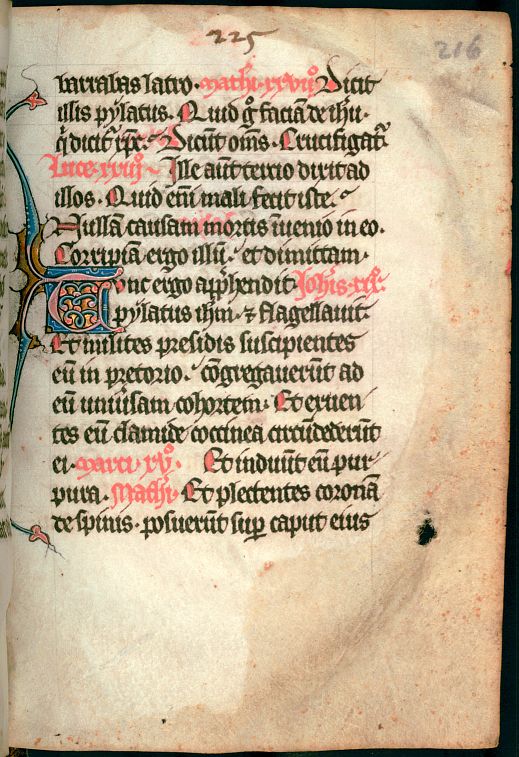 225
216
barrabas latro. Mathi. xxvii. Dicit
illis pylatus. Quid g faciā de ihu.
q dicitr xpc. Dicūt oms. Crucifigatr
Luce xxiii Ille aūt tercio dixit ad
illos. Quid eni mali fecit iste.
Nullā causam mortis iuenio in eo.
Corripiā ergo illū. et dimittam.
Tunc ergo apphendit Johis. xix.
pylatus ihm. ⁊ flagellauit.
Et milites presidis suscipientes
eū in pretorio. cōgregauerūt ad
eū uniūsam cohortem. Et exuen-
tes eū clamide coccinea circūdederūt
ei. Marci. xv. Et induūt eū pur-
pura. Mathi. Et plectentes coronā
de spinis. posuerūt sup caput eius